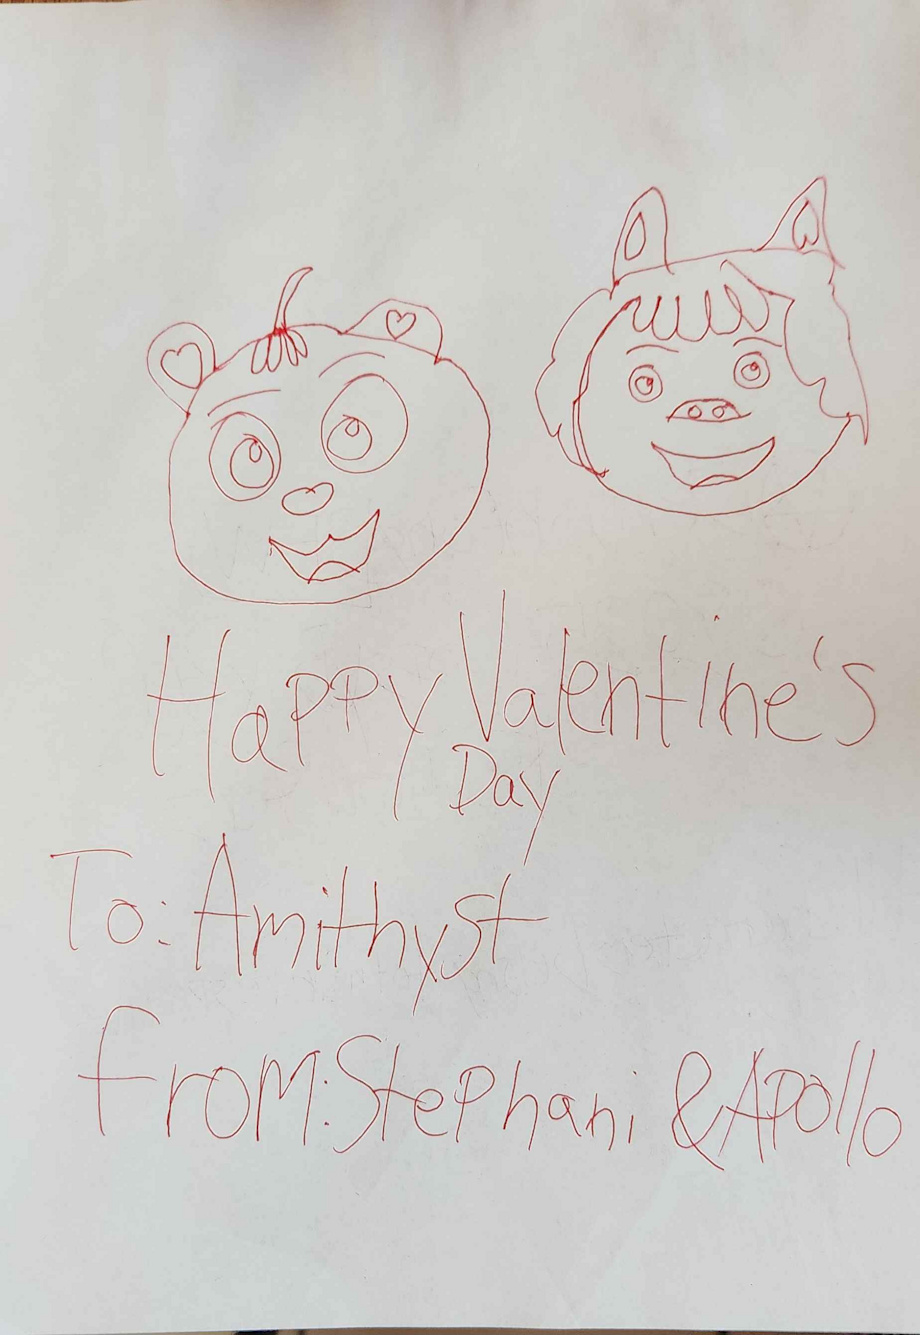 Happy Valentine's
Day
To: Amithyst
From: Stephani & Apollo